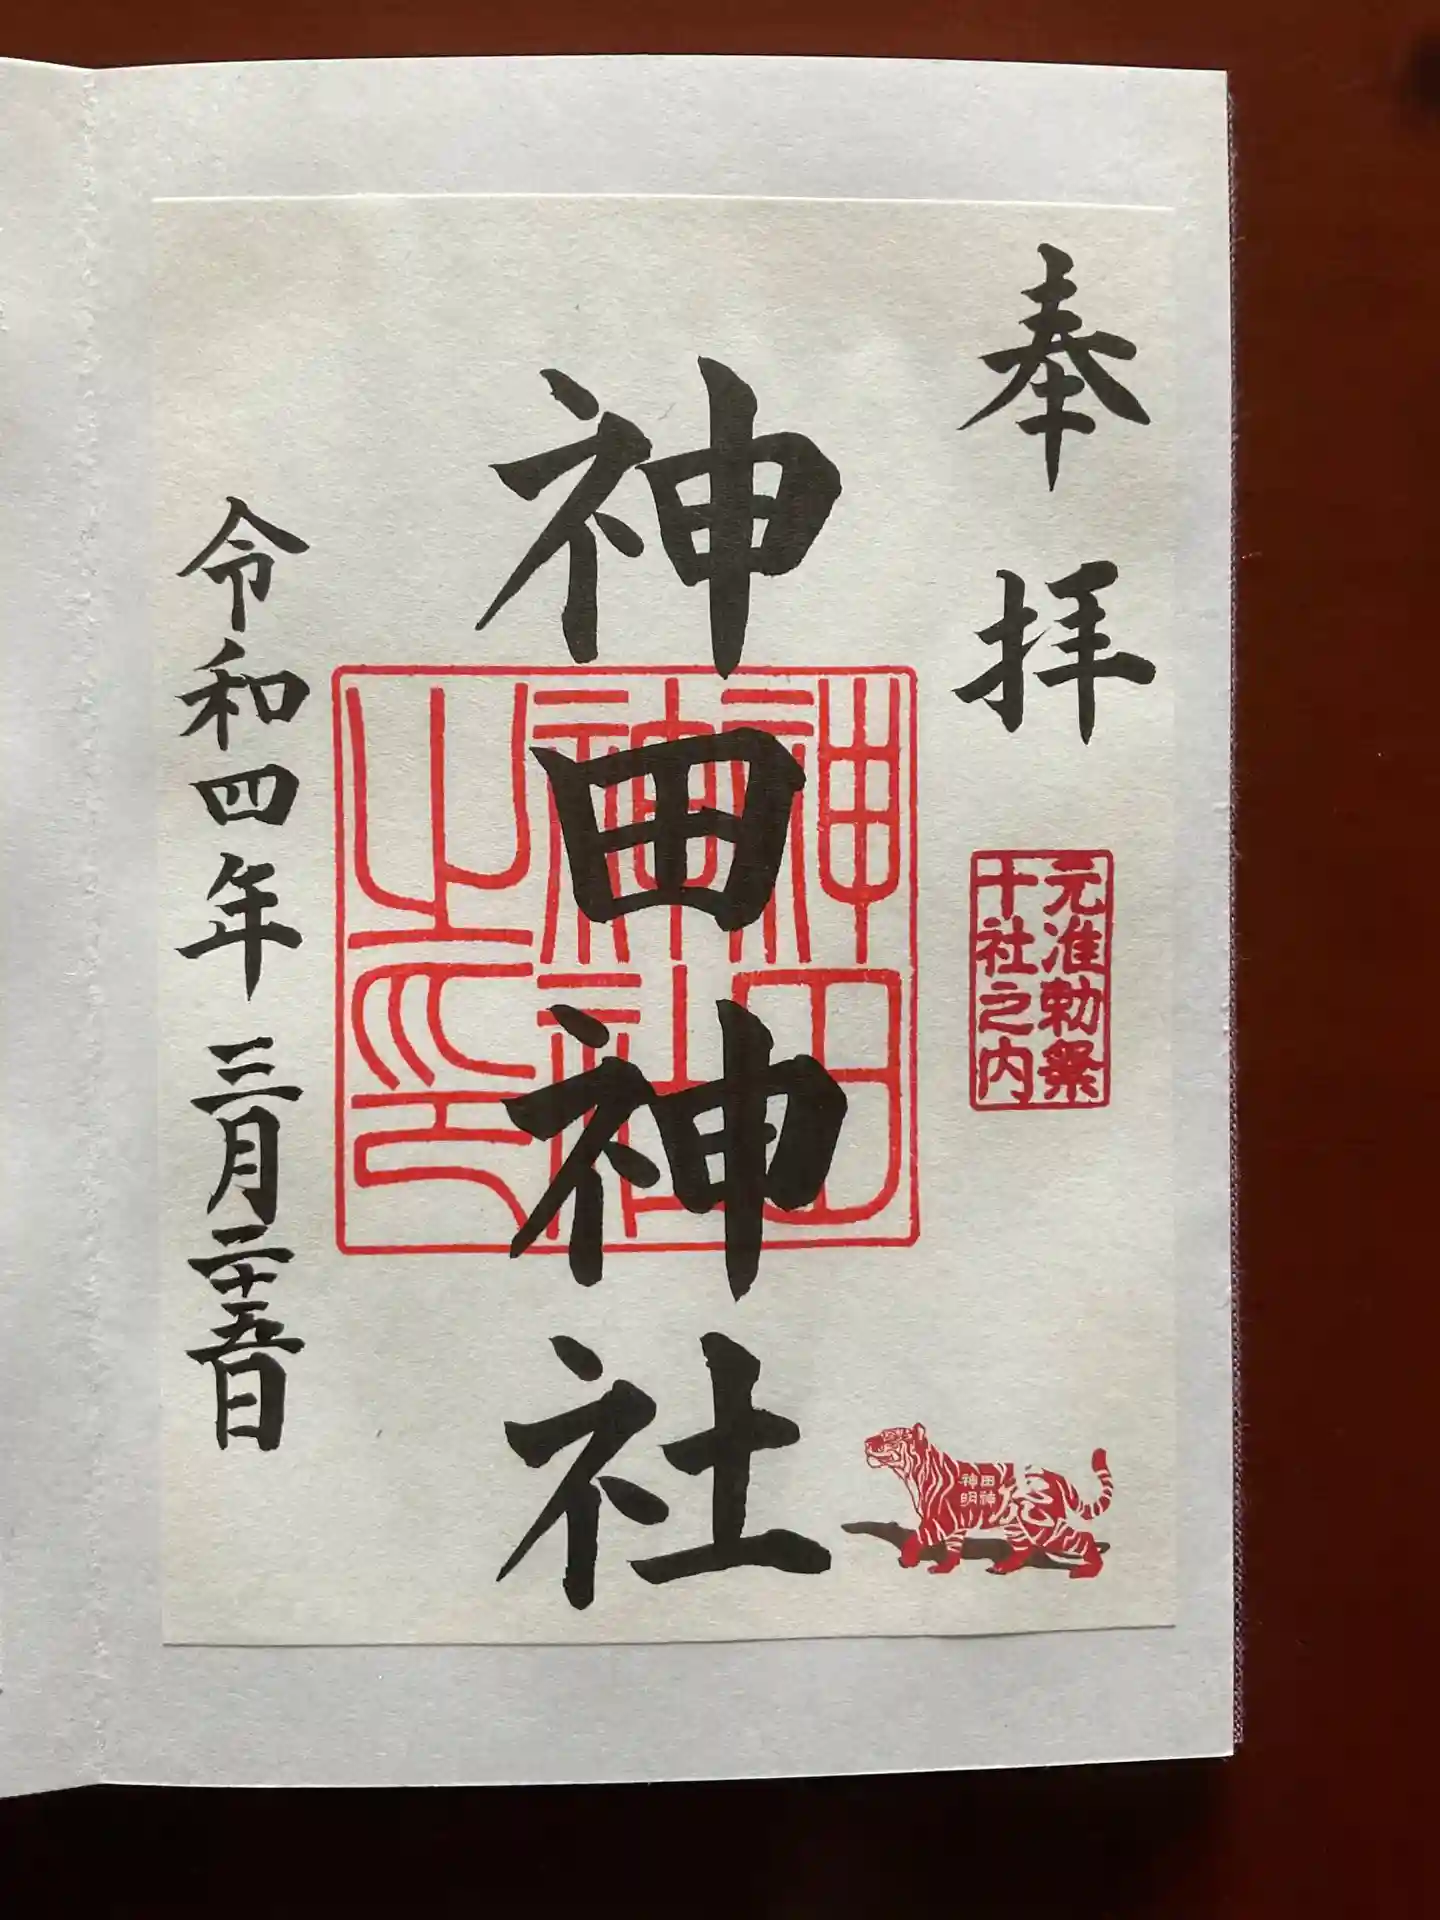 奉拝
元准勅祭
十社之内
神田神社
神田神社之印
田神
神明
虎
令和四年三月二十五日